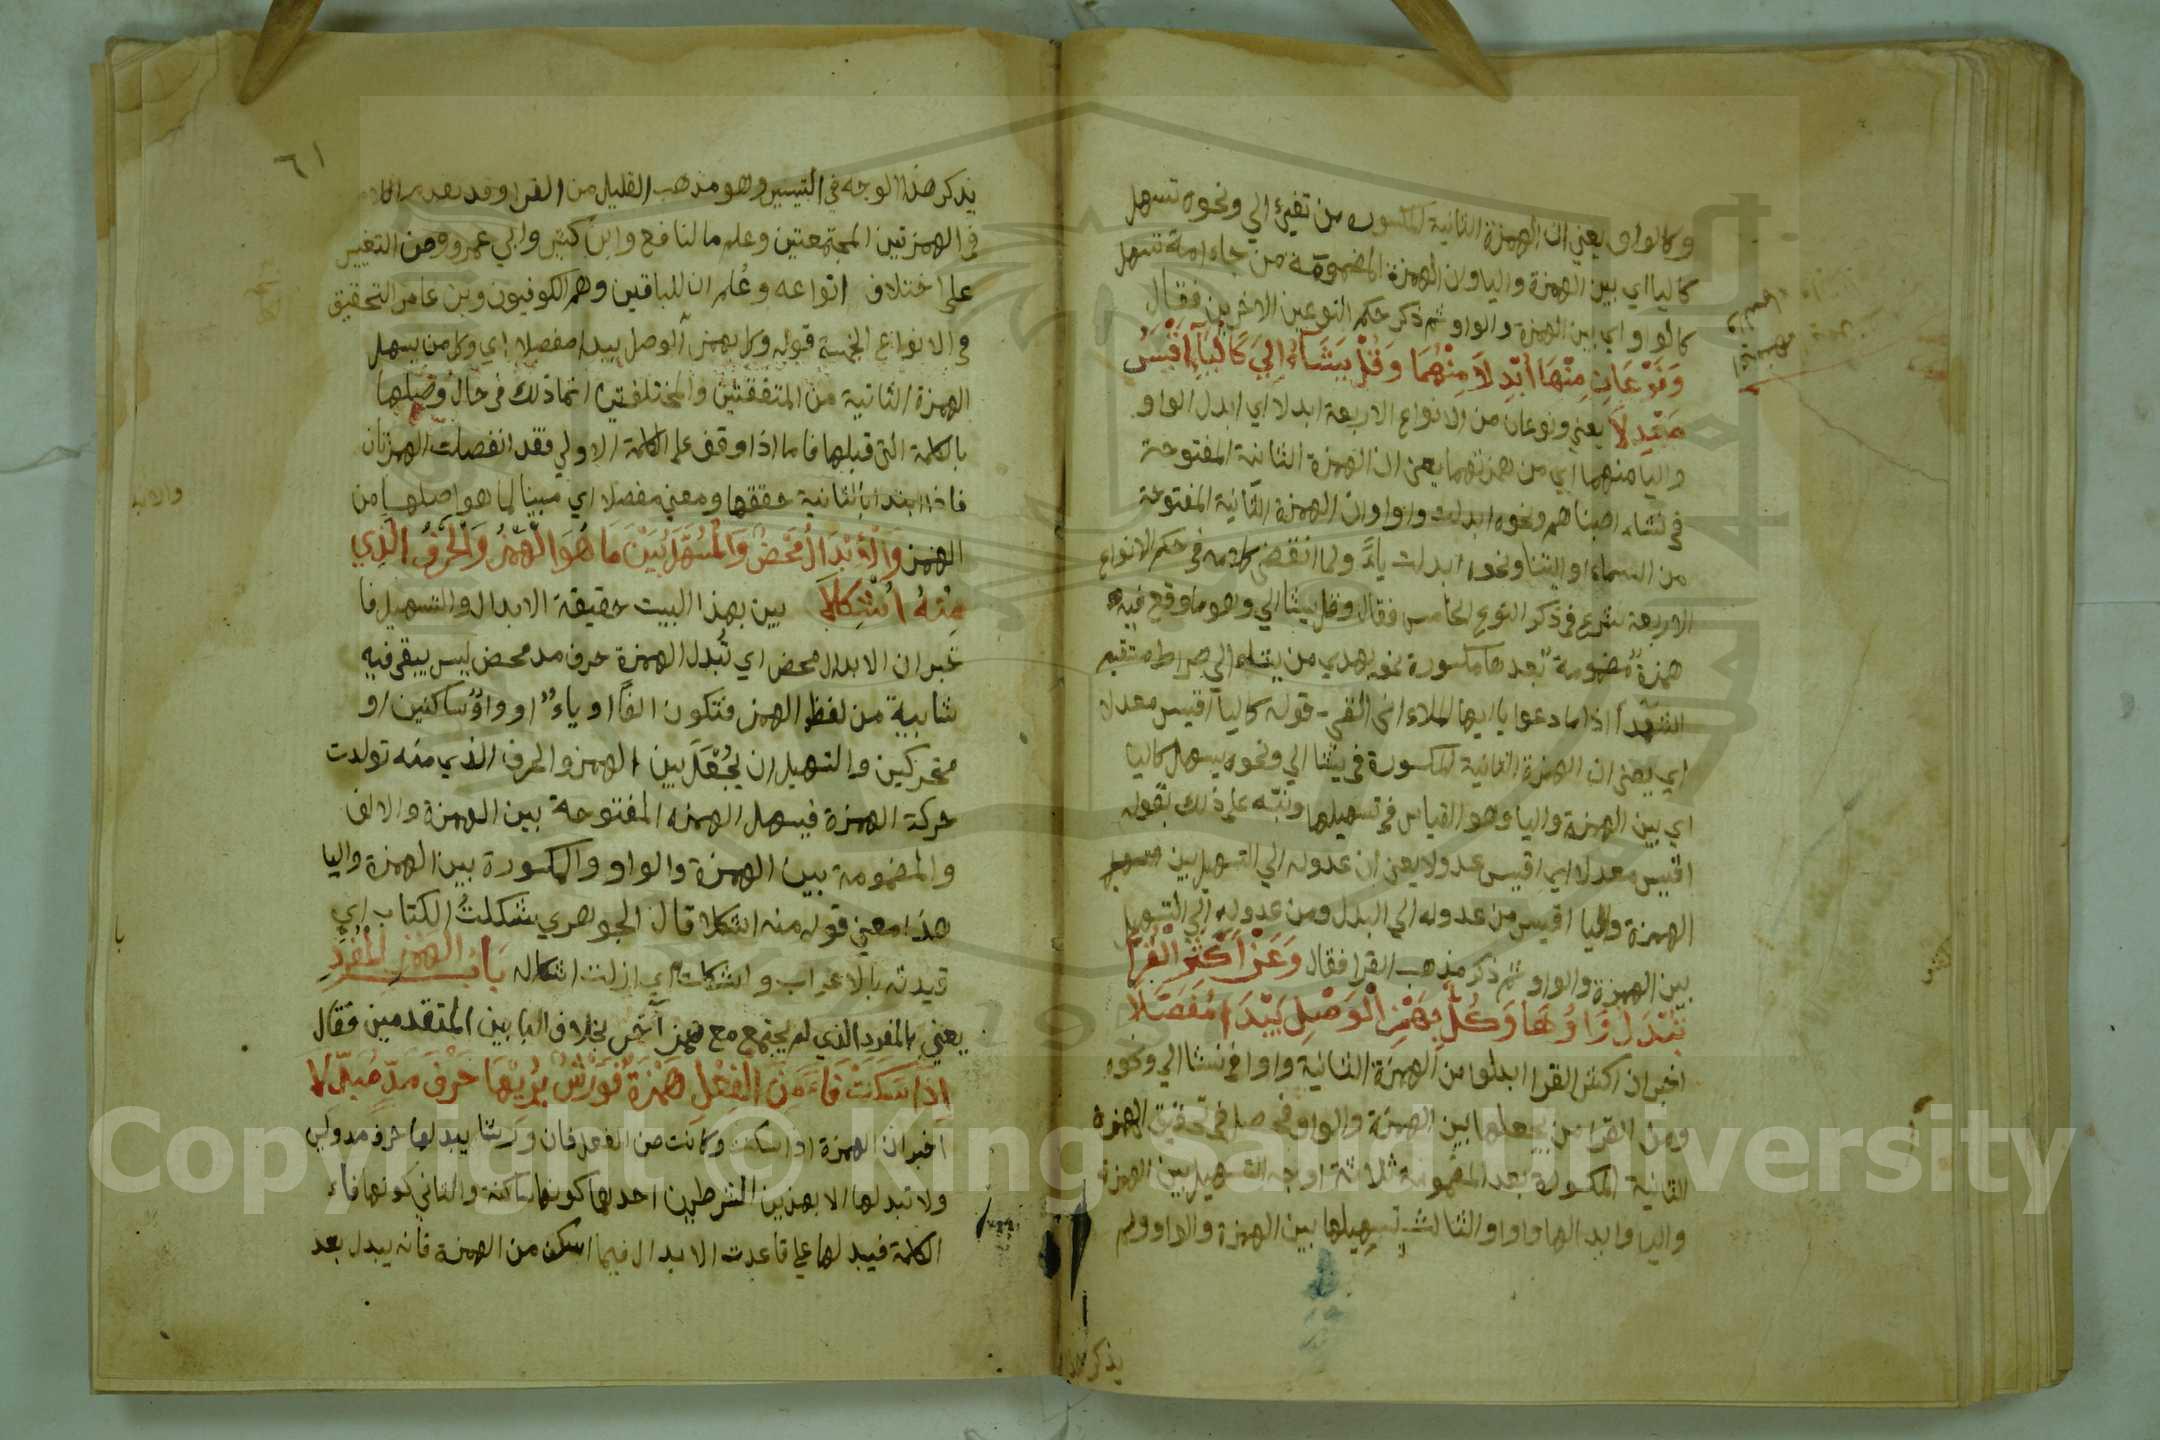 وكالواو يعني ان الهمزة الثانية المكسورة من تفيئ الي ونحوه تسهل
كاليا اي بين الهمزة واليا وان الهمزة المضمومة من جاء امة تسهل
كالواو اي بين الهمزة والواو ثم ذكر حكم النوعين الاخرين فقال
وَنَوْعَانِ مِنْهَا اُبْدِلَا مِنْهُمَا وَقُلْ يَشَاءُ اِلَيَ كَاليَاَءِ اَقْيَسُ
مَعْدِلَا يعني ونوعان من الانواع الاربعة ابدلا اي ابدل الواو
واليا منهما اي من همزتهما يعني ان الهمزة الثانية المفتوحة
في نشاء اصبناهم ونحوه ابدلت واوا وان الهمزة الثانية المفتوحة
من السماء او ايتنا ونحوه ابدلت ياءً ولما انقضي كلامه في حكم الانواع
الاربعة شرع في ذكر النوع الخامس فقال وقل يشا الي وهو ما وقع فيه
همزة مضمومة بعدها مكسورة نحو يهدي من يشاء الي صراط مستقيم
الشهدآ اذا ما دعوا يا ايها الملاء اني القي قوله كاليآ اقيس معدلا
اي يعني ان الهمزة الثانية المكسورة في يشا الي ونحوه يسهل كاليا
اي بين الهمزة واليا وهو القياس في تسهيلها ونبّه علي ذلك بقوله
اقيس معدلا اي اقيس عدولا يعني ان عدوله الي التسهيل بين
الهمزة واليا اقيس من عدوله الي البدل ومن عدوله الي التسهيل
بين الهمزة والواو ثم ذكر مذهب القرا فقال وَعَنْ اَكْثَرِ القُرَّا
تُبْدَلُ وَاوُهَا وَكُلٌّ بِهَمْزِ الْوَصْلِ يَبْدَا مُفَصَّلَا
اخبر ان اكثر القرا ابدلوا من الهمزة الثانية واوا في نشا الي ونحوه
ومن القرا من يجعلها بين الهمزة والواو فحصل في تحقيق الهمزة
الثانية المكسورة بعد المضمومة ثلاثة اوجه التسهيل بين الهمزة
واليا وابدالها واوا والثالث تسهيلها بين الهمزة والواو ولم
يذكر هذا
٦١
يذكر هذا الوجه في التيسير وهو مذهب القليل من القرا وقد تقدم
في الهمزتين المجتمعتين وعلم ما لنافع وابن كثير وابي عمرو من التغيير
علي اختلاف انواعه وعُلم ان للباقين وهم الكوفيون وبن عامر التحقيق
في الانواع الخمسة قوله وكل بهمز الوصل يبدا مفصلا اي وكل من يسهل
الهمزة الثانية من المتفقتين والمختلفتين انما ذلك في حال وصلها
بالكلمة التي قبلها فاما اذا وقف علي الكلمة الاولي فقد انفصلت الهمزتان
فاذا ابتدا بالثانية حققها ومعني مفصلا اي مبينا لما هو اصلها من
الهمز وَالْاِبْدَالُ مَحْضٌ وَالْمُسَهَّلُ بَيْنَ مَا هُوَ الْهَمْزُ وَالْحَرْفُ الَّذِي
مِنْهُ اُشْكِلَا بين بهذا البيت حقيقة الابدال والتسهيل فا
خبر ان الابدال محض اي تُبدل الهمزة حرف مد محض ليس يبقي فيه
شايبة من لفظ الهمز فتكون الفًا او ياءً او واوًا ساكنين او
متحركين والتسهيل ان يُجْعَلَ بين الهمز والحرف الذي منه تولدت
حركة الهمزة فيسهل الهمزه المفتوحة بين الهمزة والالف
والمضمومة بين الهمزة والواو والمكسورة بين الهمزة واليا
هذا معني قوله منه اشكلا قال الجوهري شكلتُ الكتاب اي
قيدته بالاعراب واشكلت اي ازلت اشكاله بَابُ الهَمْزِ المُفْرَدِ
يعني بالمفرد الذي لم يجتمع مع همز آخر بخلاف البابين المتقدمين فقال
اِذَا سَكَنَتْ فَاءً مِنَ الفِعْلِ هَمْزَةٌ فَوَرْشٌ يُرِيْهَا حَرْفَ مَدٍّ مُبَدَّلَا
اخبر ان الهمزة اذا سكنت وكانت من الفعل فان ورشا يبدلها حرف مد ولين
ولا تبدلها الا بهذين الشرطين احدهما كونها ساكنة والثاني كونها فاء
الكلمة فيبدلها علي قاعدت الابدال فيما اسكن من الهمزة فانه يبدل بعد